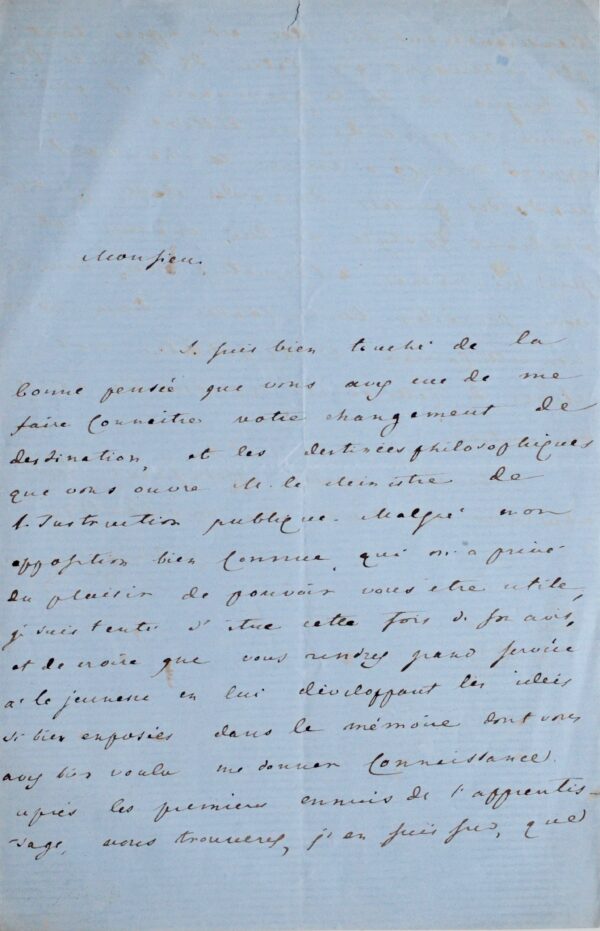 Monsieur
Je suis bien touché de la
bonne pensée que vous avez eue de me
faire Connaitre votre changement de
destination, et les destinées philosophiques
que vous ouvre M. le Ministre de
l'Instruction publique. Malgré mon
opposition bien Connue, qui m'a privé
du plaisir de pouvoir vous etre utile,
je suis tenté d'etre cette fois de son avis,
et de croire que vous rendrez grand service
à la jeunesse en lui développant les idées
si bien exposées dans le mémoire dont vous
avez bien voulu me donner Connaissance.
après les premiers ennuis de l'apprentis-
sage, vous trouverez, j'en suis sur, que